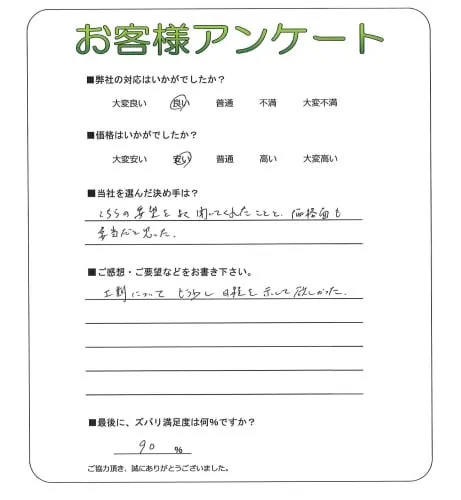 お客様アンケート
■弊社の対応はいかがでしたか？
大変良い 良い 普通 不満 大変不満
■価格はいかがでしたか？
大変安い 安い 普通 高い 大変高い
■当社を選んだ決め手は？
こちらの要望を良く聞いてくれたことと、価格面も
妥当だと思った。
■ご感想・ご要望などをお書き下さい。
工期について もう少し 日程を示して欲しかった。
■最後に、ズバリ満足度は何%ですか？
90 %
ご協力頂き、誠にありがとうございました。